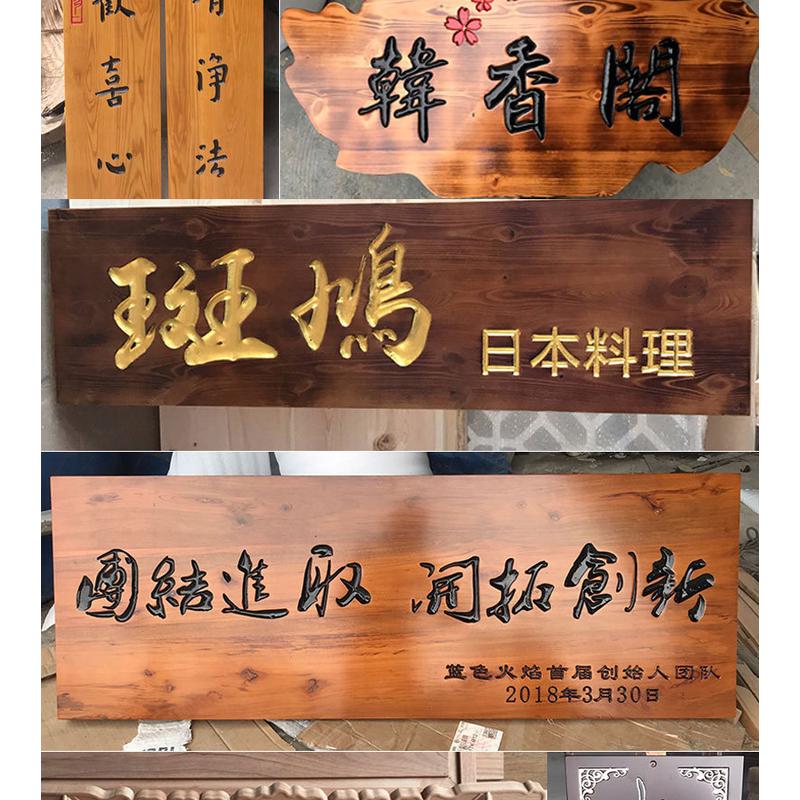 歡喜心
淨法
韓香閣
斑鳩
日本料理
團結進取 開拓創新
蓝色火焰首届创始人团队
2018年3月30日